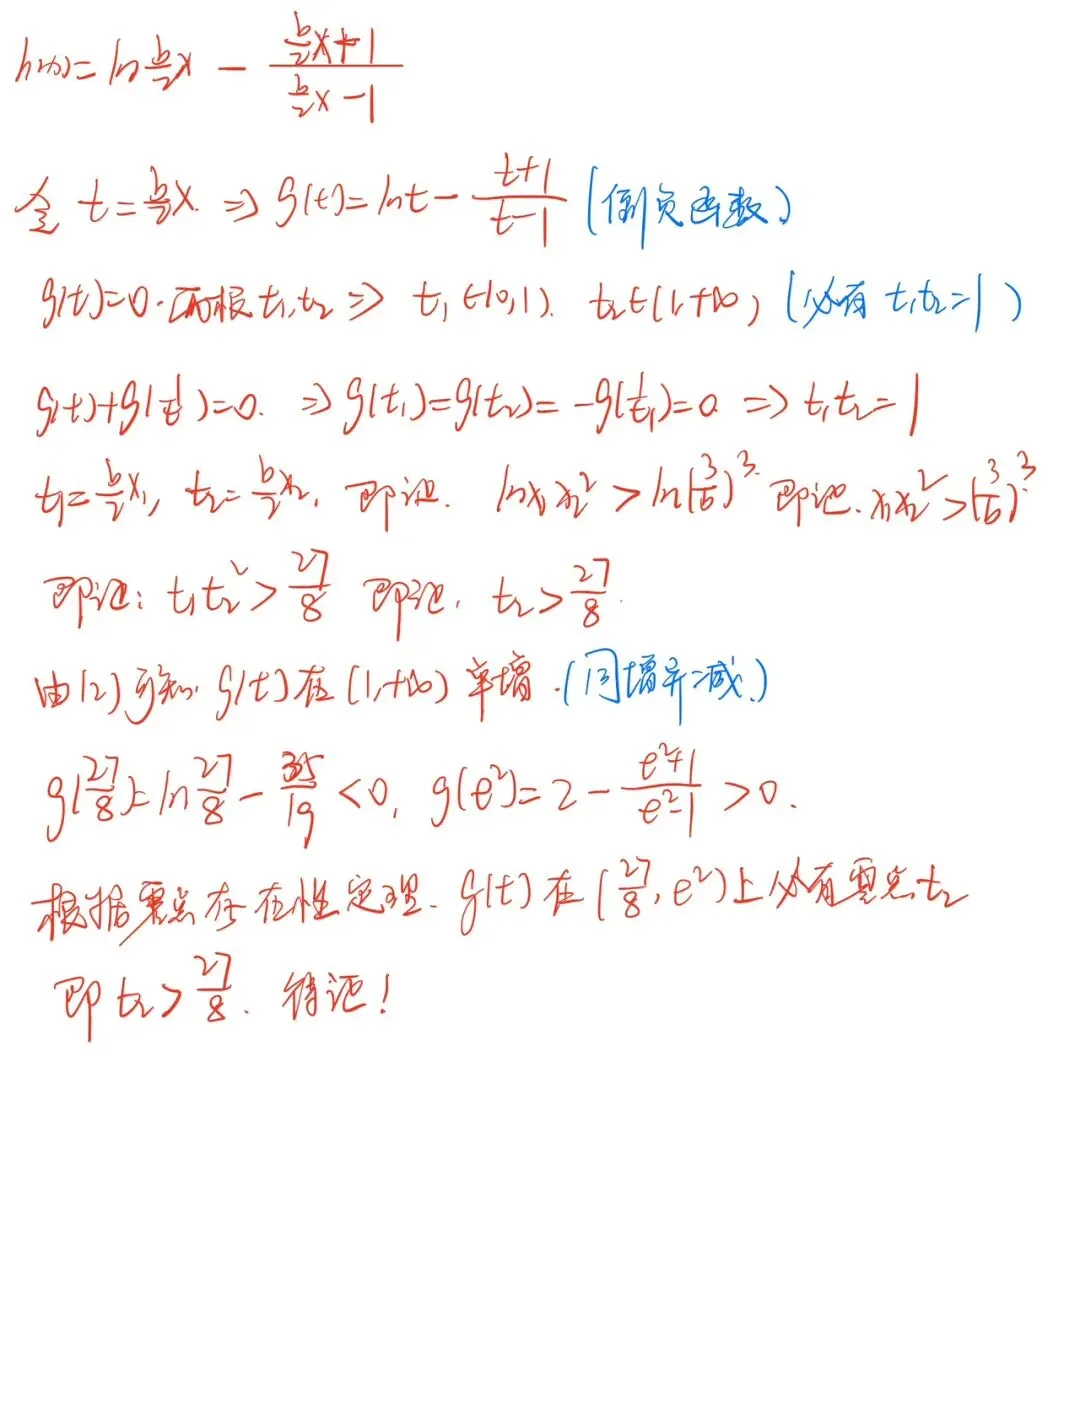 h(x)=ln b/2 x - (b/2 x+1)/(b/2 x-1)
令 t=b/2 x. ⇒ g(t)=lnt-(t+1)/(t-1) (倒负函数)
g(t)=0.两根t₁,t₂ ⇒ t₁∈(0,1). t₂∈(1,+∞) (必有 t₁t₂=1)
g(t)+g(1/t)=0. ⇒ g(t₁)=g(t₂)=-g(1/t₁)=0 ⇒ t₁t₂=1
t₁=b/2 x₁, t₂=b/2 x₂, 即证. lnx₁x₂²>ln(3/b)³. 即证. x₁x₂²>(3/b)³.
即证: t₁t₂²>27/8 即证. t₂>27/8.
由(2)可知. g(t)在(1,+∞)单增.(同增异减.)
g(27/8)=ln27/8-35/19<0, g(e²)=2-(e²+1)/(e²-1)>0.
根据零点存在性定理. g(t)在(27/8,e²)上必有零点t₂
即t₂>27/8. 得证!